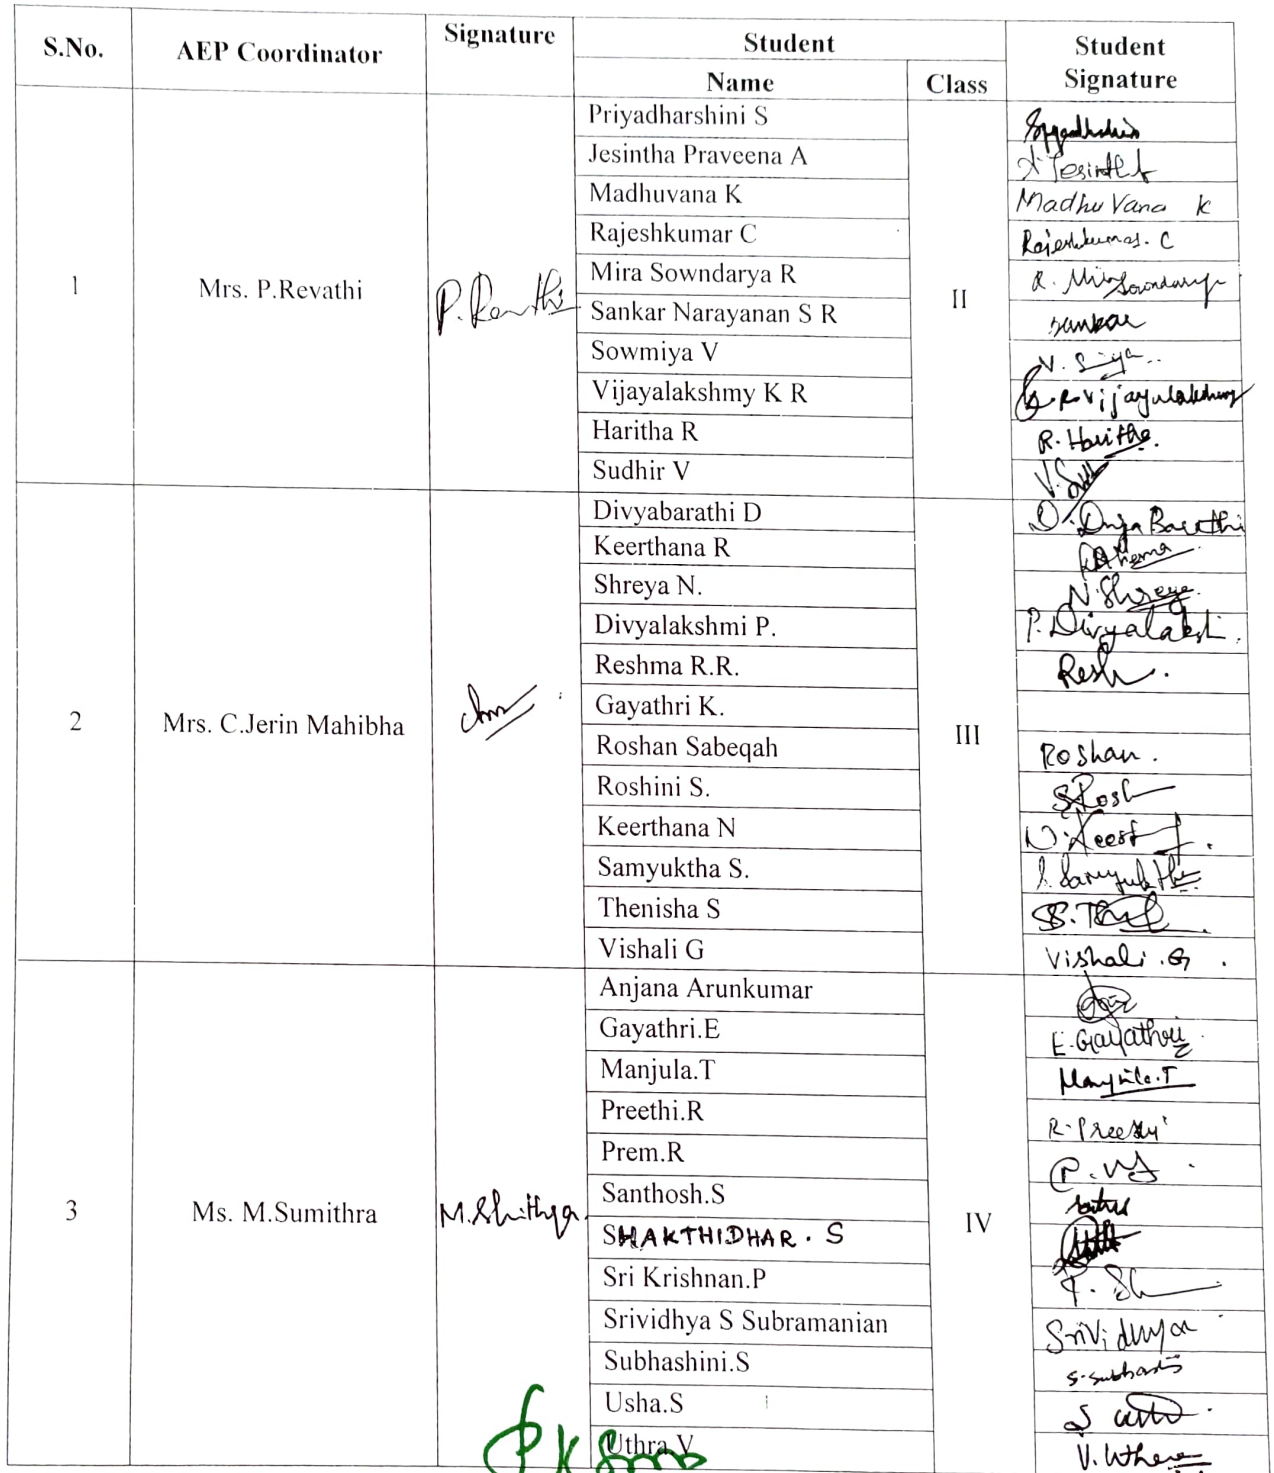 S.No. AEP Coordinator Signature Student Student Signature
Name Class
1 Mrs. P.Revathi II
Priyadharshini S
Jesintha Praveena A
Madhuvana K Madhu Vana K
Rajeshkumar C Rajeshkumar. C
Mira Sowndarya R R. Mira Sowndarya
Sankar Narayanan S R Sankar
Sowmiya V
Vijayalakshmy K R K. R. Vijayalakshmy
Haritha R R. Haritha.
Sudhir V
2 Mrs. C.Jerin Mahibha III
Divyabarathi D
Keerthana R
Shreya N. N. Shreya.
Divyalakshmi P.
Reshma R.R. Resh.
Gayathri K.
Roshan Sabeqah Roshan.
Roshini S. S. Rosh
Keerthana N
Samyuktha S. S. Samyuktha
Thenisha S
Vishali G Vishali .G .
3 Ms. M.Sumithra IV
Anjana Arunkumar
Gayathri.E E. Gayathri
Manjula.T Manjula.T
Preethi.R R. Preethi
Prem.R
Santhosh.S
SHAKTHIDHAR. S
Sri Krishnan.P
Srividhya S Subramanian Srividhya
Subhashini.S
Usha.S
Uthra V V. Uthra